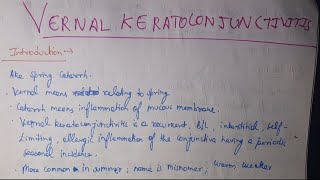 VERNAL KERATOCONJUNCTIVITIS
Introduction →
Aka Spring Catarrh.
· Vernal means relating to spring.
· Catarrh means inflammation of mucous membrane.
· Vernal keratoconjunctivitis is a recurrent, B/L, interstitial, self-
limiting, allergic inflammation of the conjunctiva having a periodic
seasonal incidence.
· More common in summer; name is misnomer; warm weather